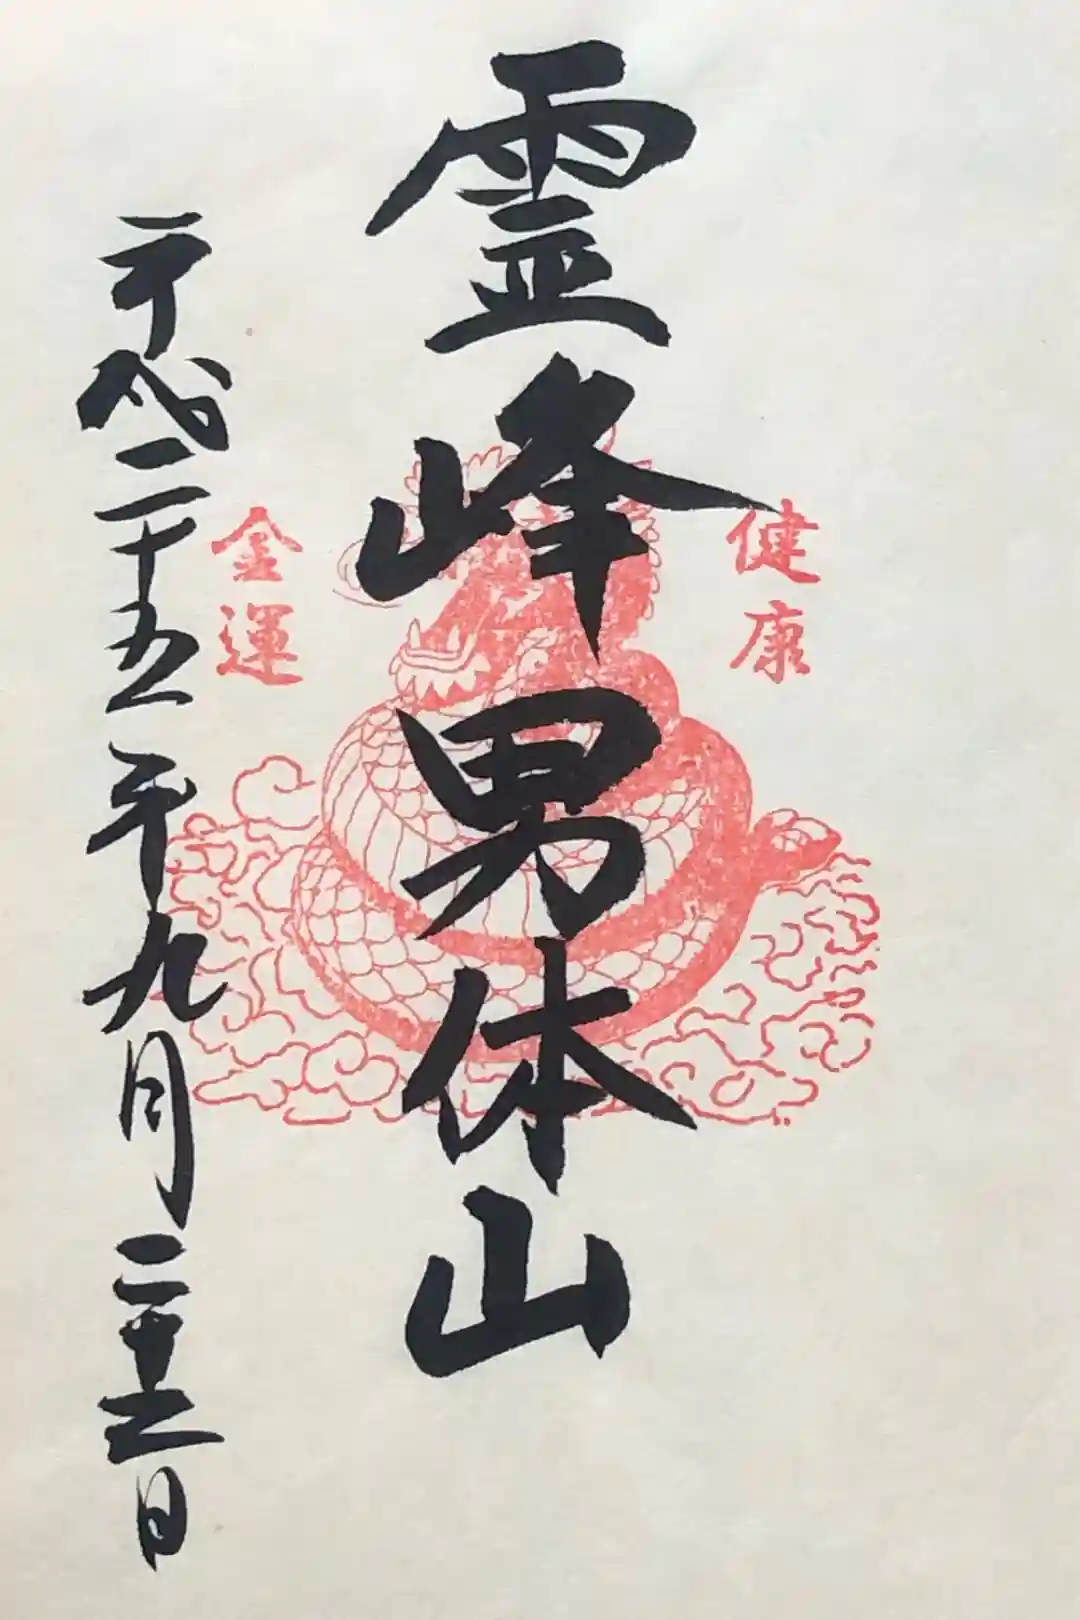 健康
霊峰男体山
金運
平成二十五年九月二十三日